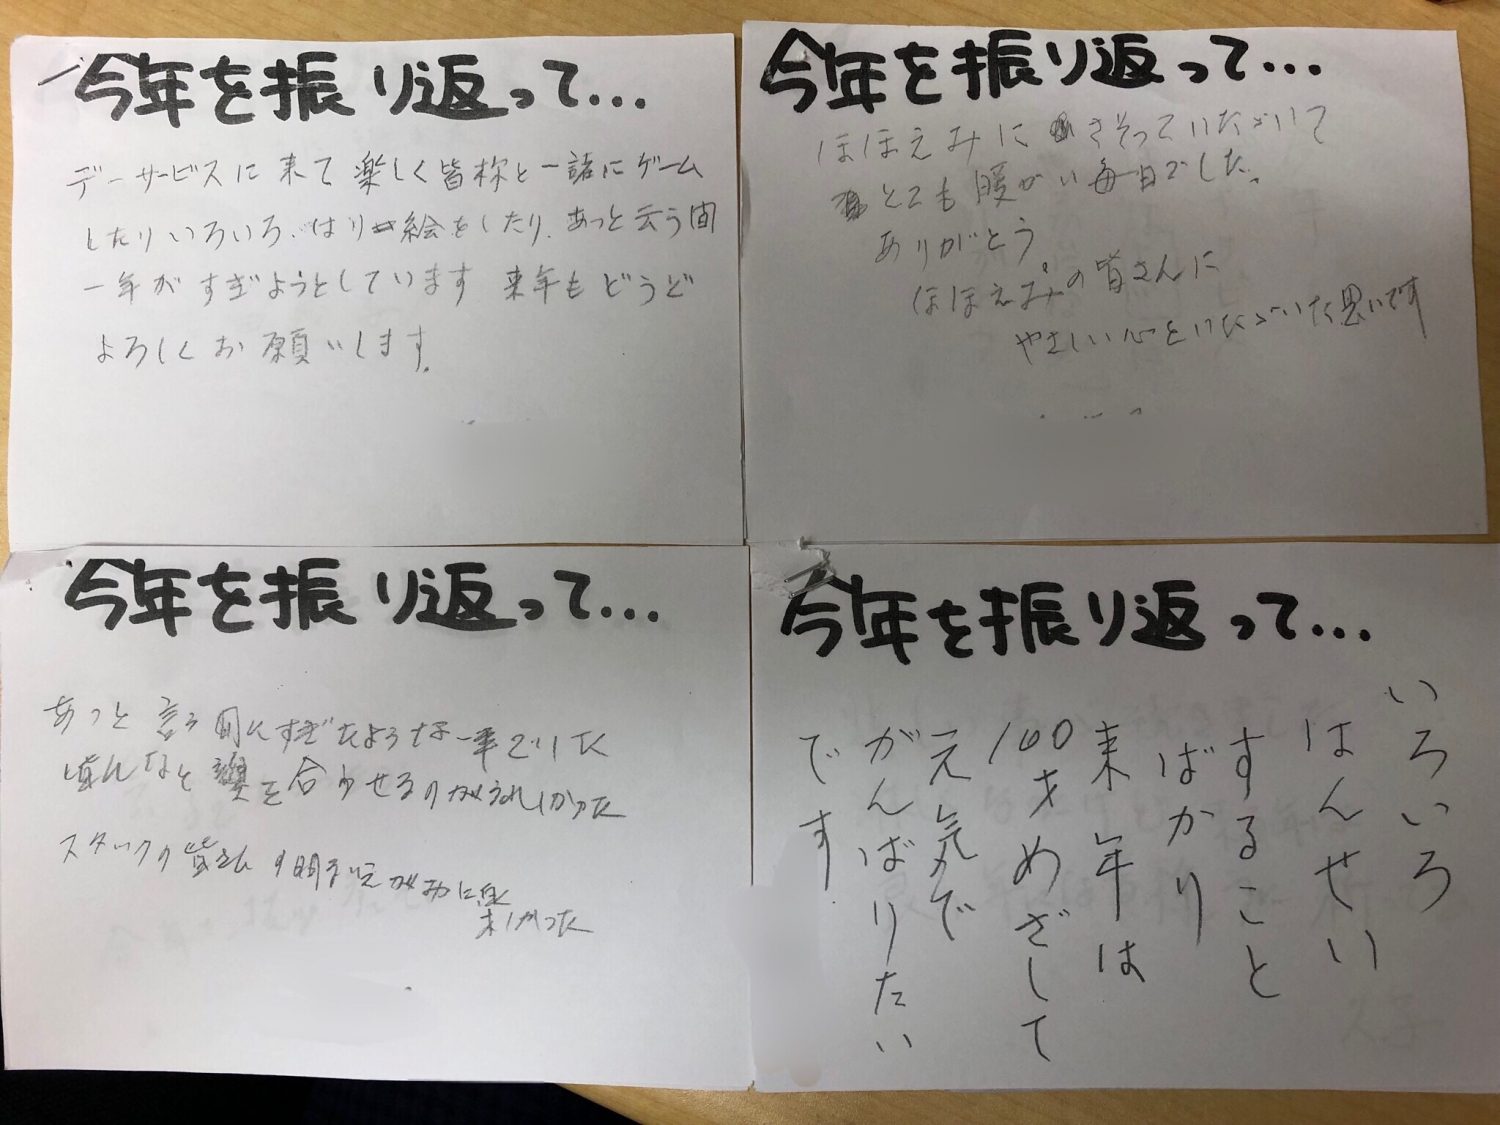 今年を振り返って…
デーサービスに来て楽しく皆様と一諸にゲーム
したりいろいろ、はり絵をしたり、あっと云う間
一年がすぎようとしています 来年もどうど
よろしくお願いします。
今年を振り返って…
ほほえみにさそっていただいて
とても暖かい毎日でした。
ありがとう。
ほほえみの皆さんに
やさしい心をいただいた思いです
今年を振り返って…
あっと言う間にすぎたような一年でした
皆んなと を合わせるのがうれしかった
スタッフの皆さん の明るいえがおに
しかった
今年を振り返って…
いろいろ
はんせい
すること
ばかり
来年は
100才めざして
元気で
がんばりたい
です